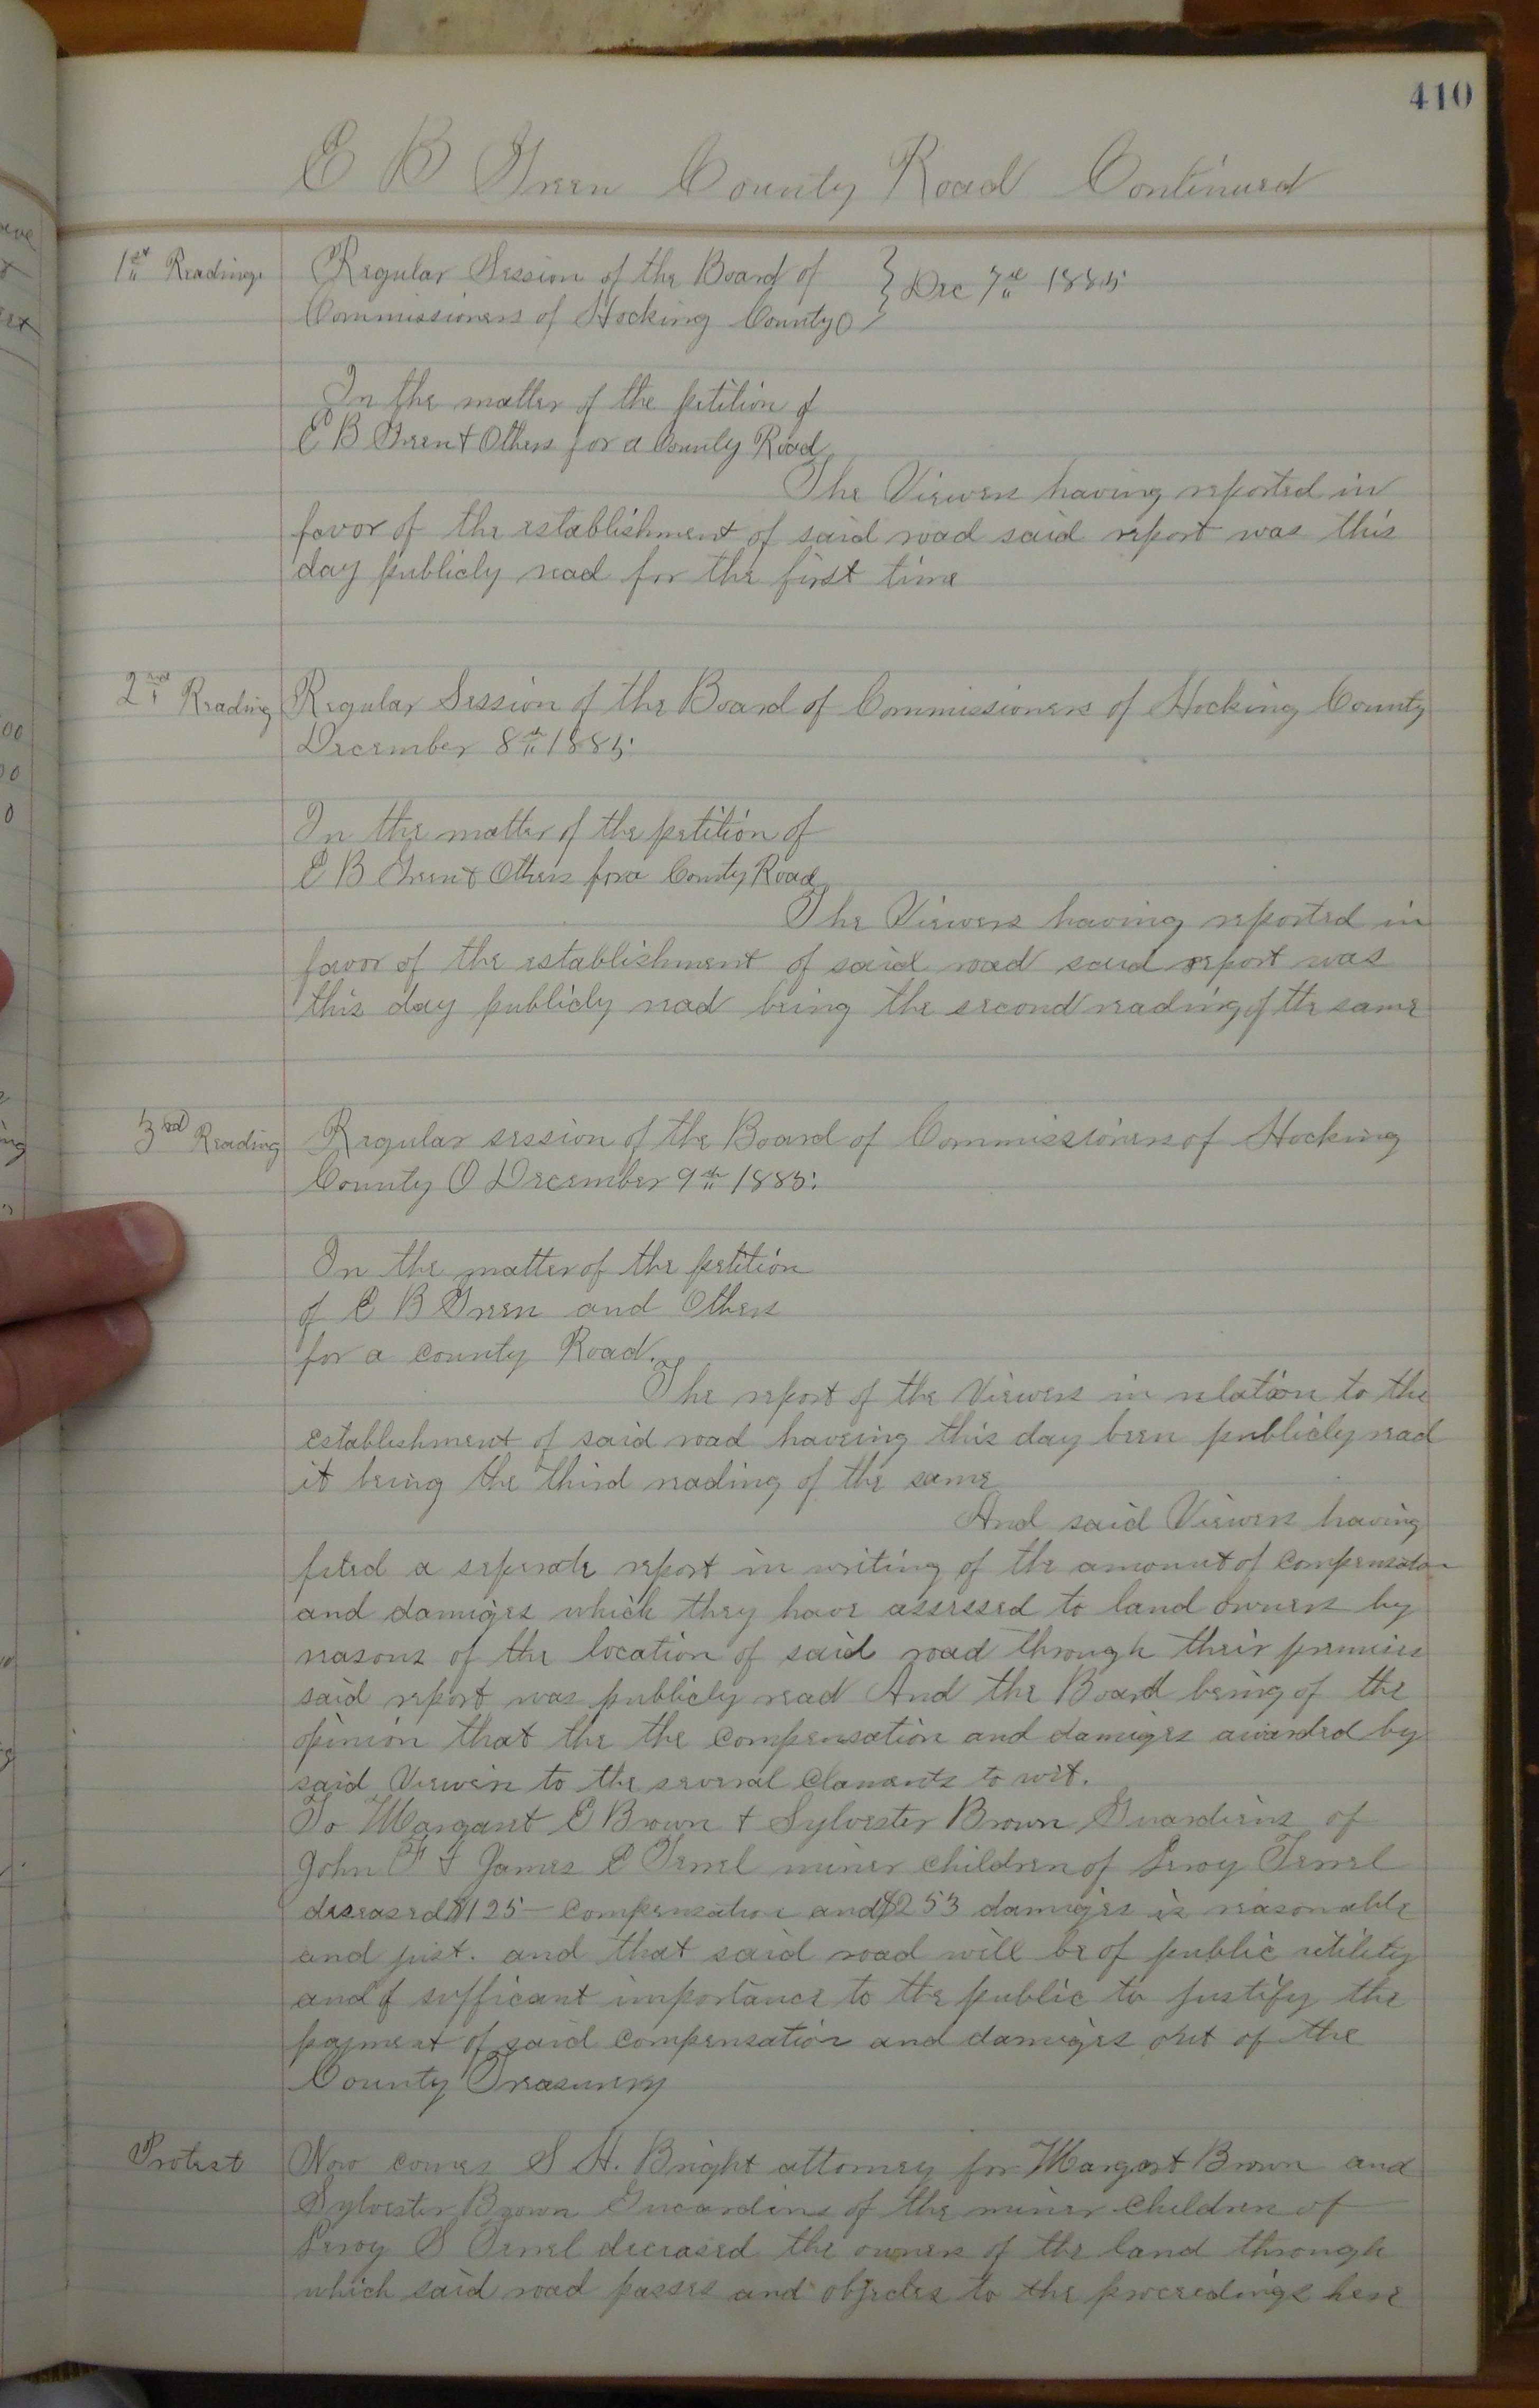 410
E B Green County Road Continued
1st Reading
Regular Session of the Board of } Dec 7th 1885
Commissioners of Hocking County O
In the matter of the petition of
E B Green + Others for a County Road
The Viewers having reported in
favor of the establishment of said road said report was this
day publicly read for the first time
2nd Reading
Regular Session of the Board of Commissioners of Hocking County
December 8th 1885
In the matter of the petition of
E B Green + Others for a County Road
The Viewers having reported in
favor of the establishment of said road said report was
this day publicly read being the second reading of the same
3rd Reading
Regular session of the Board of Commissioners of Hocking
County O December 9th 1885.
In the matter of the petition
of E B Green and Others
for a county Road.
The report of the Viewers in relation to the
establishment of said road haveing this day been publicly read
it being the third reading of the same
And said Viewers having
filed a seperate report in writing of the amount of compensation
and damiges which they have assessed to land owners by
reasons of the location of said road through their premises
said report was publicly read And the Board being of the
opinion that the the compensation and damiges awarded by
said Viewers to the several Clamants to wit.
To Margaret E Brown + Sylvester Brown Guardiens of
John F + James E Terrel miner children of Leroy Terrel
deseased $125— Compensation and $253 damiges is reasonable
and just. and that said road will be of public utility
and of sufficant importance to the public to justify the
payment of said compensation and damiges out of the
County Treasurery
Protest
Now comes S H. Bright attorney for Margaret Brown and
Sylvester Brown Guardins of the miner children of
Leroy S Terrel deceased the owners of the land through
which said road passes and objectes to the proceedings here